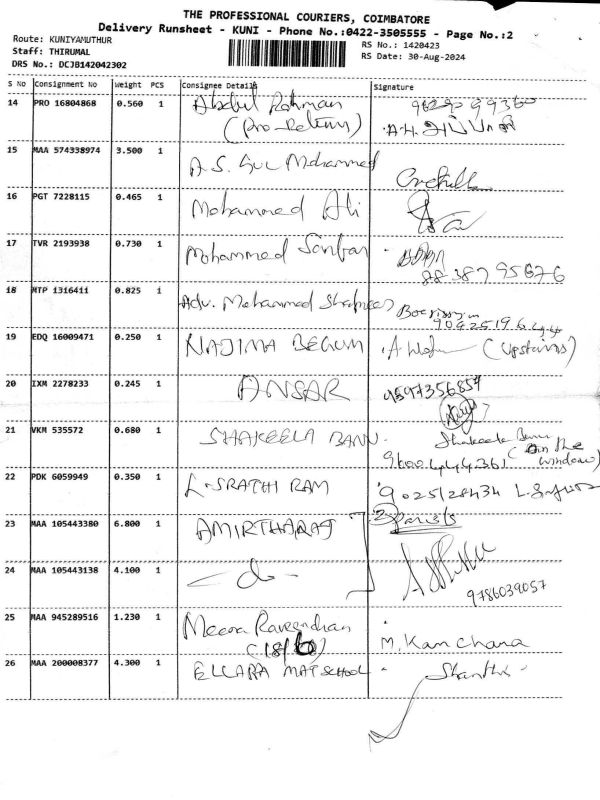 THE PROFESSIONAL COURIERS, COIMBATORE
Delivery Runsheet - KUNI - Phone No.:0422-3505555 - Page No.:2
Route: KUNIYAMUTHUR
RS No.: 1420423
Staff: THIRUMAL
RS Date: 30-Aug-2024
DRS No.: DCJB142042302
S No Consignment No Weight PCS Consignee Details Signature
14 PRO 16804868 0.560 1 Abdul Rahman
15 MAA 574338974 3.500 1 A.S. Gul Mohammed
16 PGT 7228115 0.465 1 Mohammed Ali
17 TVR 2193938 0.730 1 Mohammed
18 MTP 1316411 0.825 1 Adv. Mohammed
19 EDQ 16009471 0.250 1 NAJIMA BEGUM (Upstairs)
20 IXM 2278233 0.245 1 ANSAR 9597356857
21 VKM 535572 0.680 1 SHAKEELA BANU Shakeela Banu
9600444361 (on the window)
22 PDK 6059949 0.350 1 L. SRATHI RAM 9025128434
23 MAA 105443380 6.800 1 AMIRTHARAJ 2 parcels
24 MAA 105443138 4.100 1 - do -
9786039057
25 MAA 945289516 1.230 1 Meera Raveendran M. Kanchana
26 MAA 200008377 4.300 1 ELLARA MAT SCHOOL Shanthi